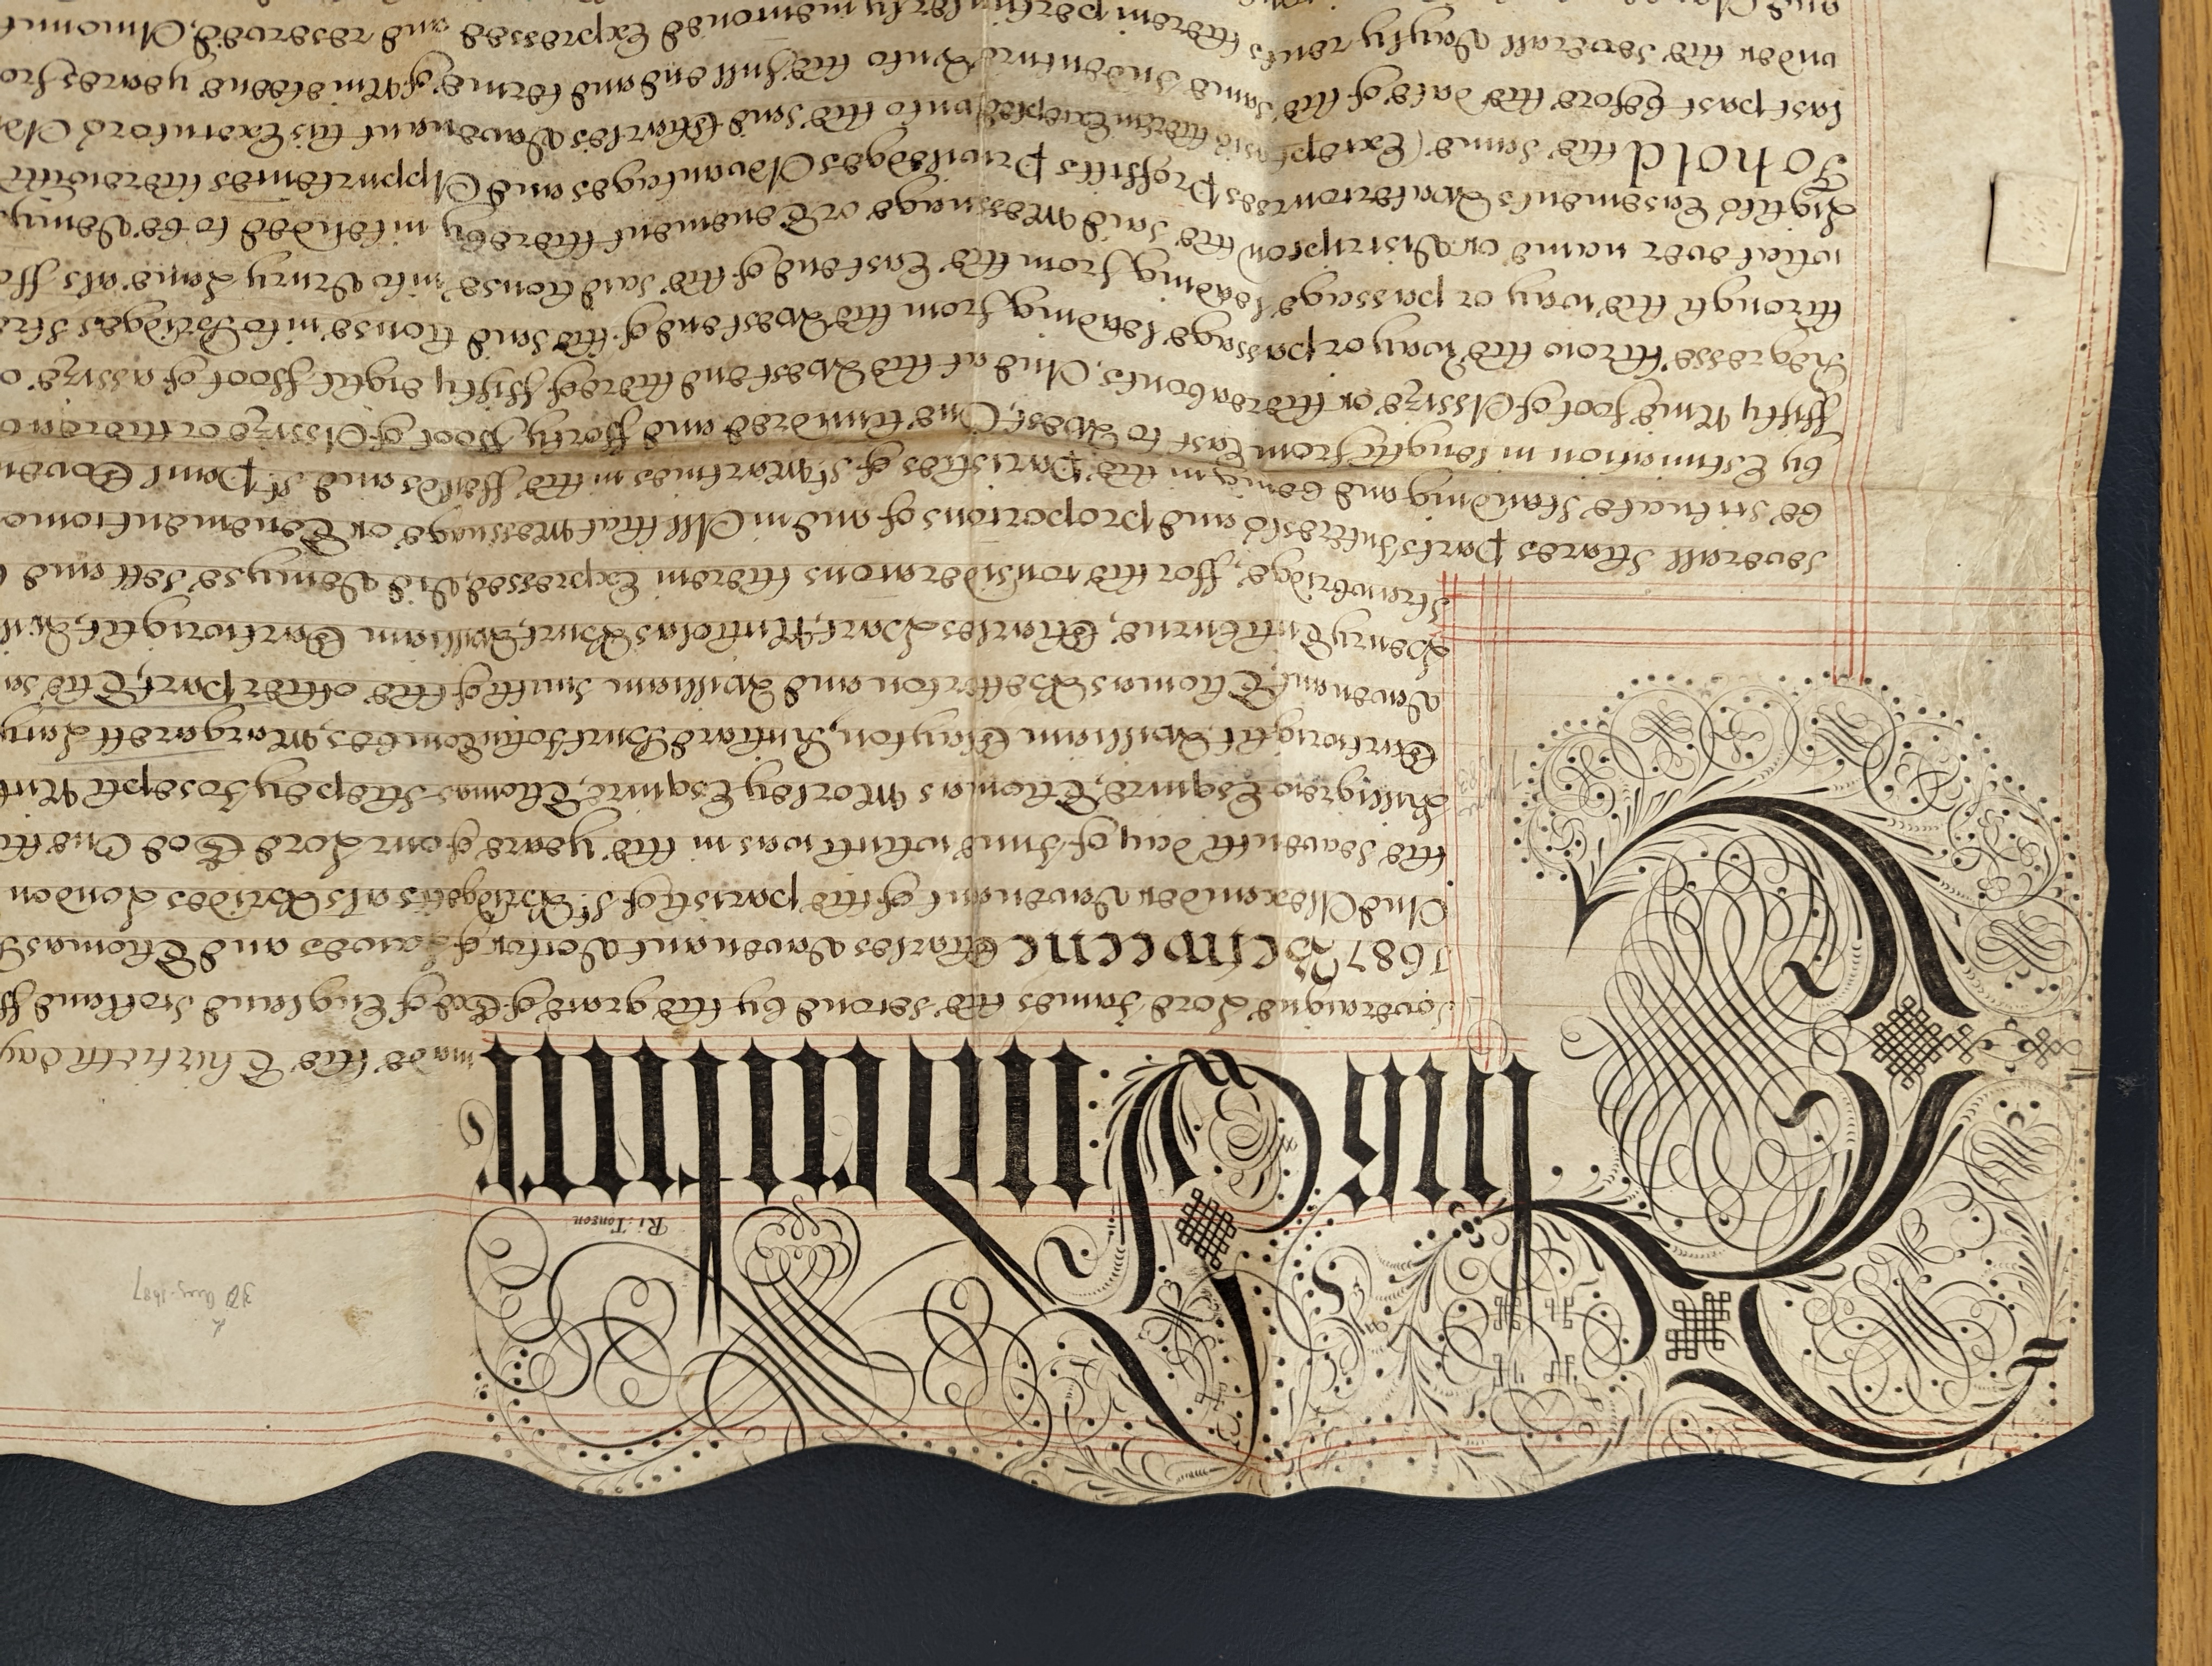 30 Aug. 1687
Ri: Tonson
This Indenture
made the Thirtieth day
Soveraigne Lord James the second by the grace of God of England Scotland
1687 Betweene Charles Davenant Doctor of Lawes and Thomas
And Alexander Davenant of the parish of St. Bridgetts als Brides London
the seaventh day of June which was in the yeare of our Lord God One
Killigrew Esquire, Thomas Morley Esquire, Thomas Shepey Joseph
Cartwright William Clayton, Richard Hurt John Tombes, Margarett Lacy
Davenant Thomas Betterton and William Smith of the other part, The
Henry Tichburne, Charles Hart, Nicholas Burt, William Cartwright,
Strawbridge, ffor the consideracons therein Expressed, Did Demyse sett and
severall Shares Parts Interests and proporcons of and in All that Messuage or Tenement
be scituate standing and being in the Parishes of St. Martines in the ffeilds and St. Paul
by Estimation in length from East to West, One hundred and fforty ffoot of Assize or
ffifty Nine foot of Assize or thereabouts, And at the West end thereof ffifty eight ffoot of assize
Regresse throw the way or passage leading from the West end of the said house into Bridges
through the way or passage leading from the East end of the said house into Drury Lane als
what ever name or discripcon the said Messuage or Tenement thereby intended to be
Lights Easements Watercourses Proffitts Priviledges Advantages and Appurtenances
To hold the same (Except as is therein Excepted) unto the said Charles Davenant his Executors
last past before the date of the same Indenture Unto the full end and terme of Nineteene yeares
under the severall dayly rents therein perticulerly menconed Expressed and reserved,